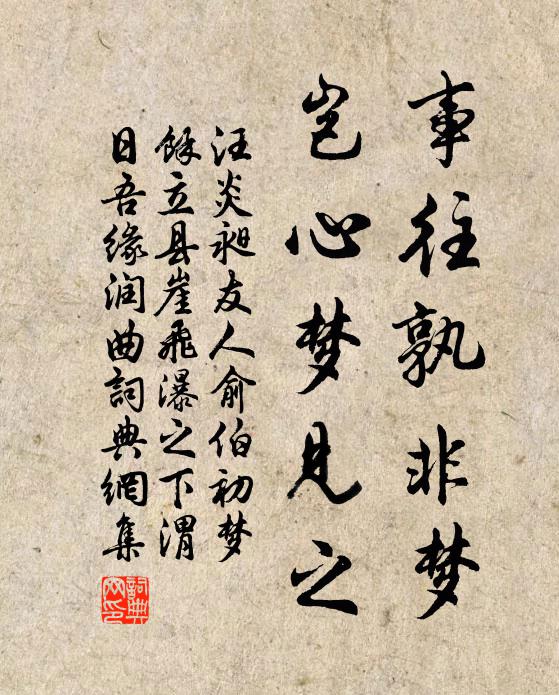 事往孰非梦
岂心梦见之
汪炎昶友人俞伯初梦
馀立县崖飛瀑之下渭
日吾缘润曲詞典網集
詞典
网印